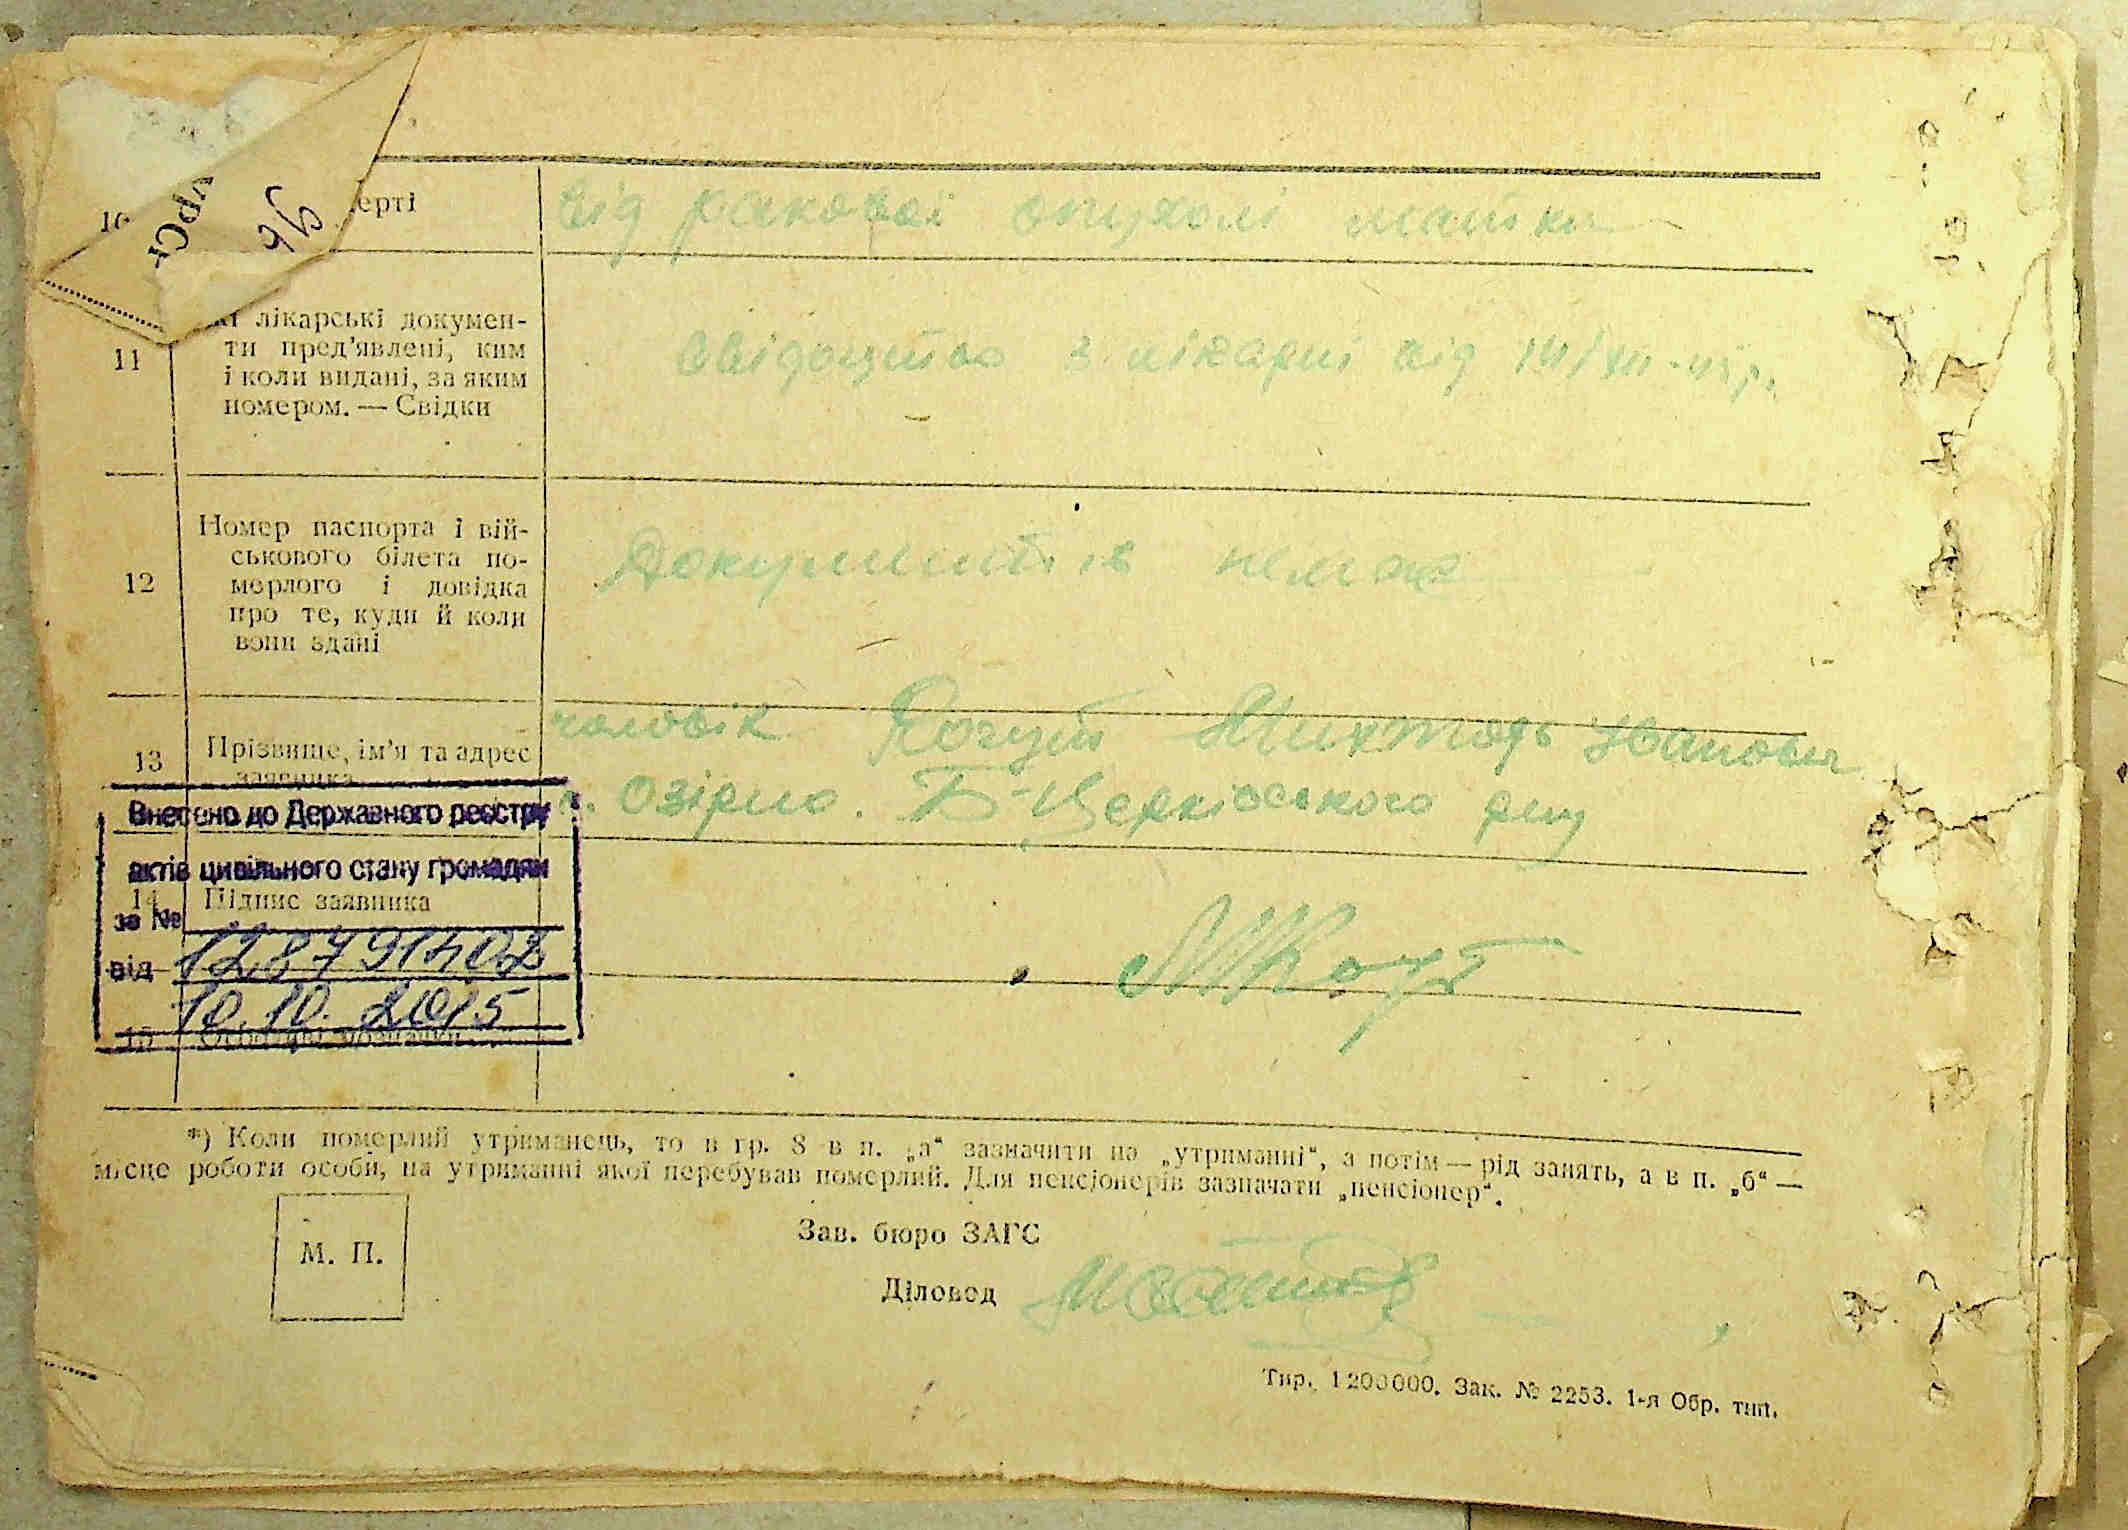 10
ерті
від ракової опухолі матки
11
лікарські докумен-
ти пред’явлені, ким
і коли видані, за яким
номером. — Свідки
Свідоцтво з лікарні від 14/XII-45р.
12
Номер паспорта і вій-
ськового білета по-
мерлого і довідка
про те, куди й коли
вони здані
Документів немає
13
Прізвище, ім’я та адрес
заявника
чоловік Когут Іванович
с. Озірно. Б-Церківського р-ну
Внесено до Державного реєстру
актів цивільного стану громадян
за №
від
10.10.2015
14
Підпис заявника
МКогут
15
*) Коли померлий утриманець, то в гр. 8 в п. „а“ зазначити на „утриманні“, а потім — рід занять, а в п. „б“ —
місце роботи особи, на утриманні якої перебував померлий. Для пенсіонерів зазначати „пенсіонер“.
М. П.
Зав. бюро ЗАГС
Діловод
Тир. 1200000. Зак. № 2253. 1-я Обр. тип.